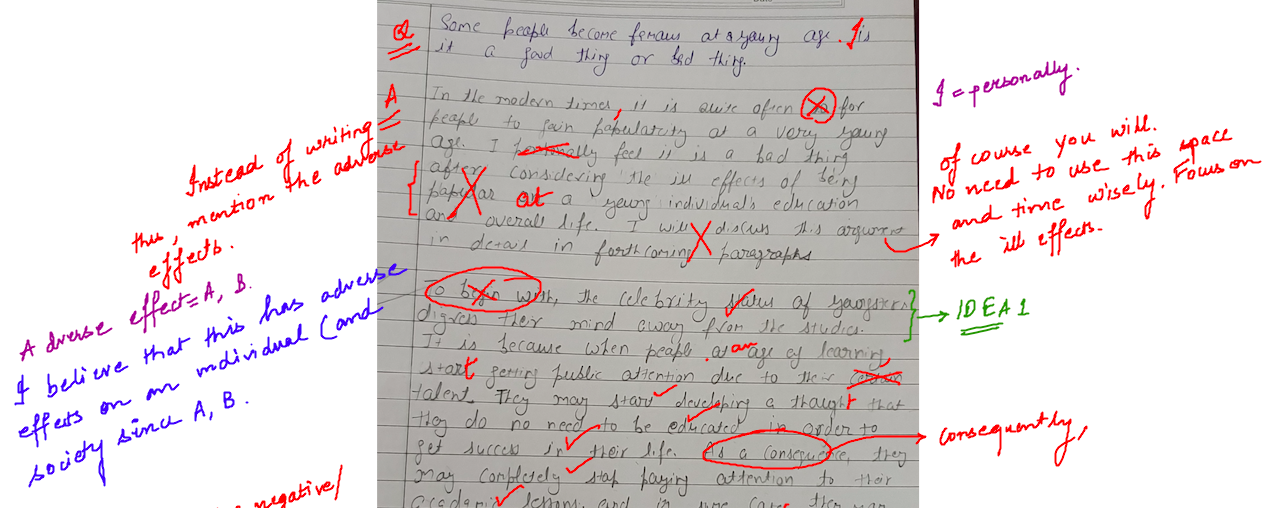 Q Some people become famous at a young age. Is
it a good thing or bad thing.
A In the modern times, it is quite often for
people to gain popularity at a very young
age. I personally feel it is a bad thing
after considering the ill effects of being
popular at a young individual's education
and overall life. I will discuss this argument
in detail in forthcoming paragraphs
To begin with, the celebrity status of youngsters
digress their mind away from the studies.
It is because when people at an age of learning,
start getting public attention due to their certain
talent. They may start developing a thought that
they do no need to be educated in order to
get success in their life. As a consequence, they
may completely stop paying attention to their
academic lessons, and in some cases they may
Instead of writing
this, mention the adverse
effects.
Adverse effect = A, B.
I believe that this has adverse
effects on an individual (and
society since A, B.
negative/
I = personally.
of course you will.
No need to use this space
and time wisely. Focus on
the ill effects.
IDEA 1
consequently,